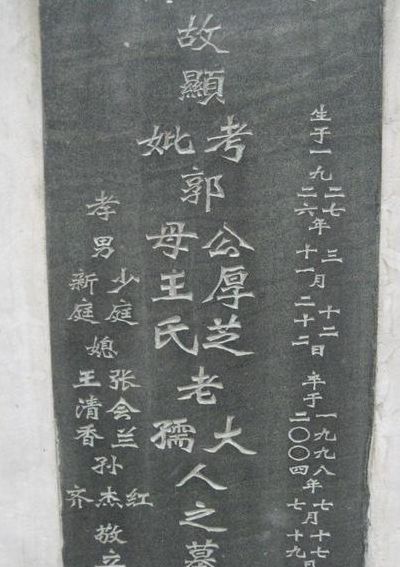 生于一九二七二六年三十一月十二二十二日卒于一九九八二〇〇四年七七月十七十九日
故顯考妣郭公厚芝母王氏老大孺人之墓
孝男少庭新庭媳张会兰王清香孙红齐杰敬立